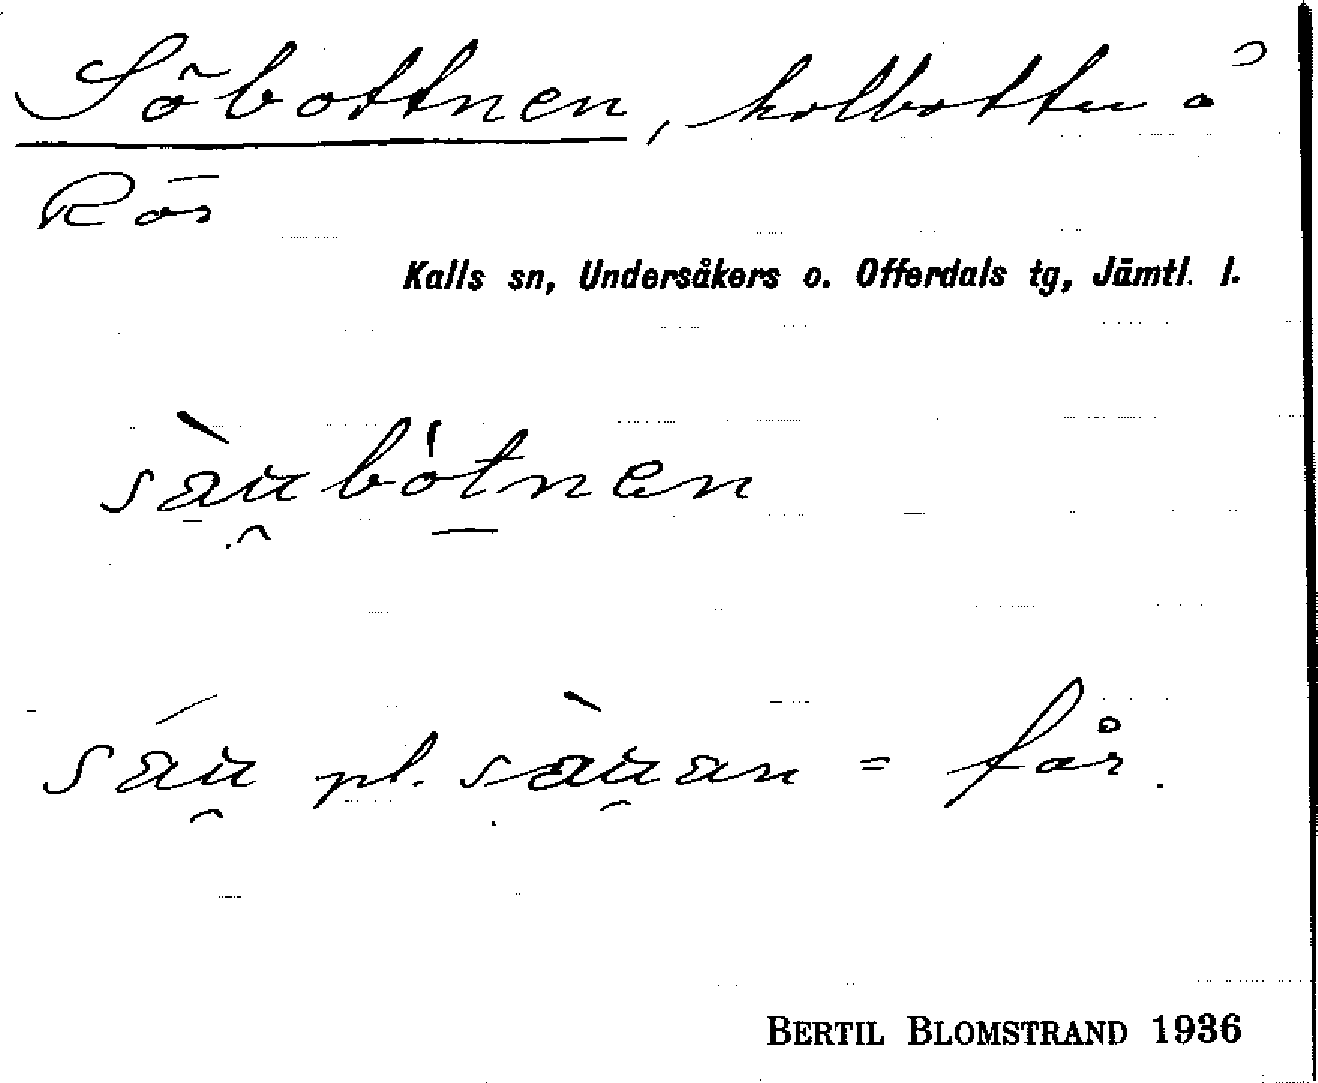 Söbottnen, kolbotten å
Rös
Kalls sn, Undersåkers o. Offerdals tg, Jämtl. l.
sàu̯bótnen
sáu̯ pl. sàu̯an = får.
BERTIL BLOMSTRAND 1936